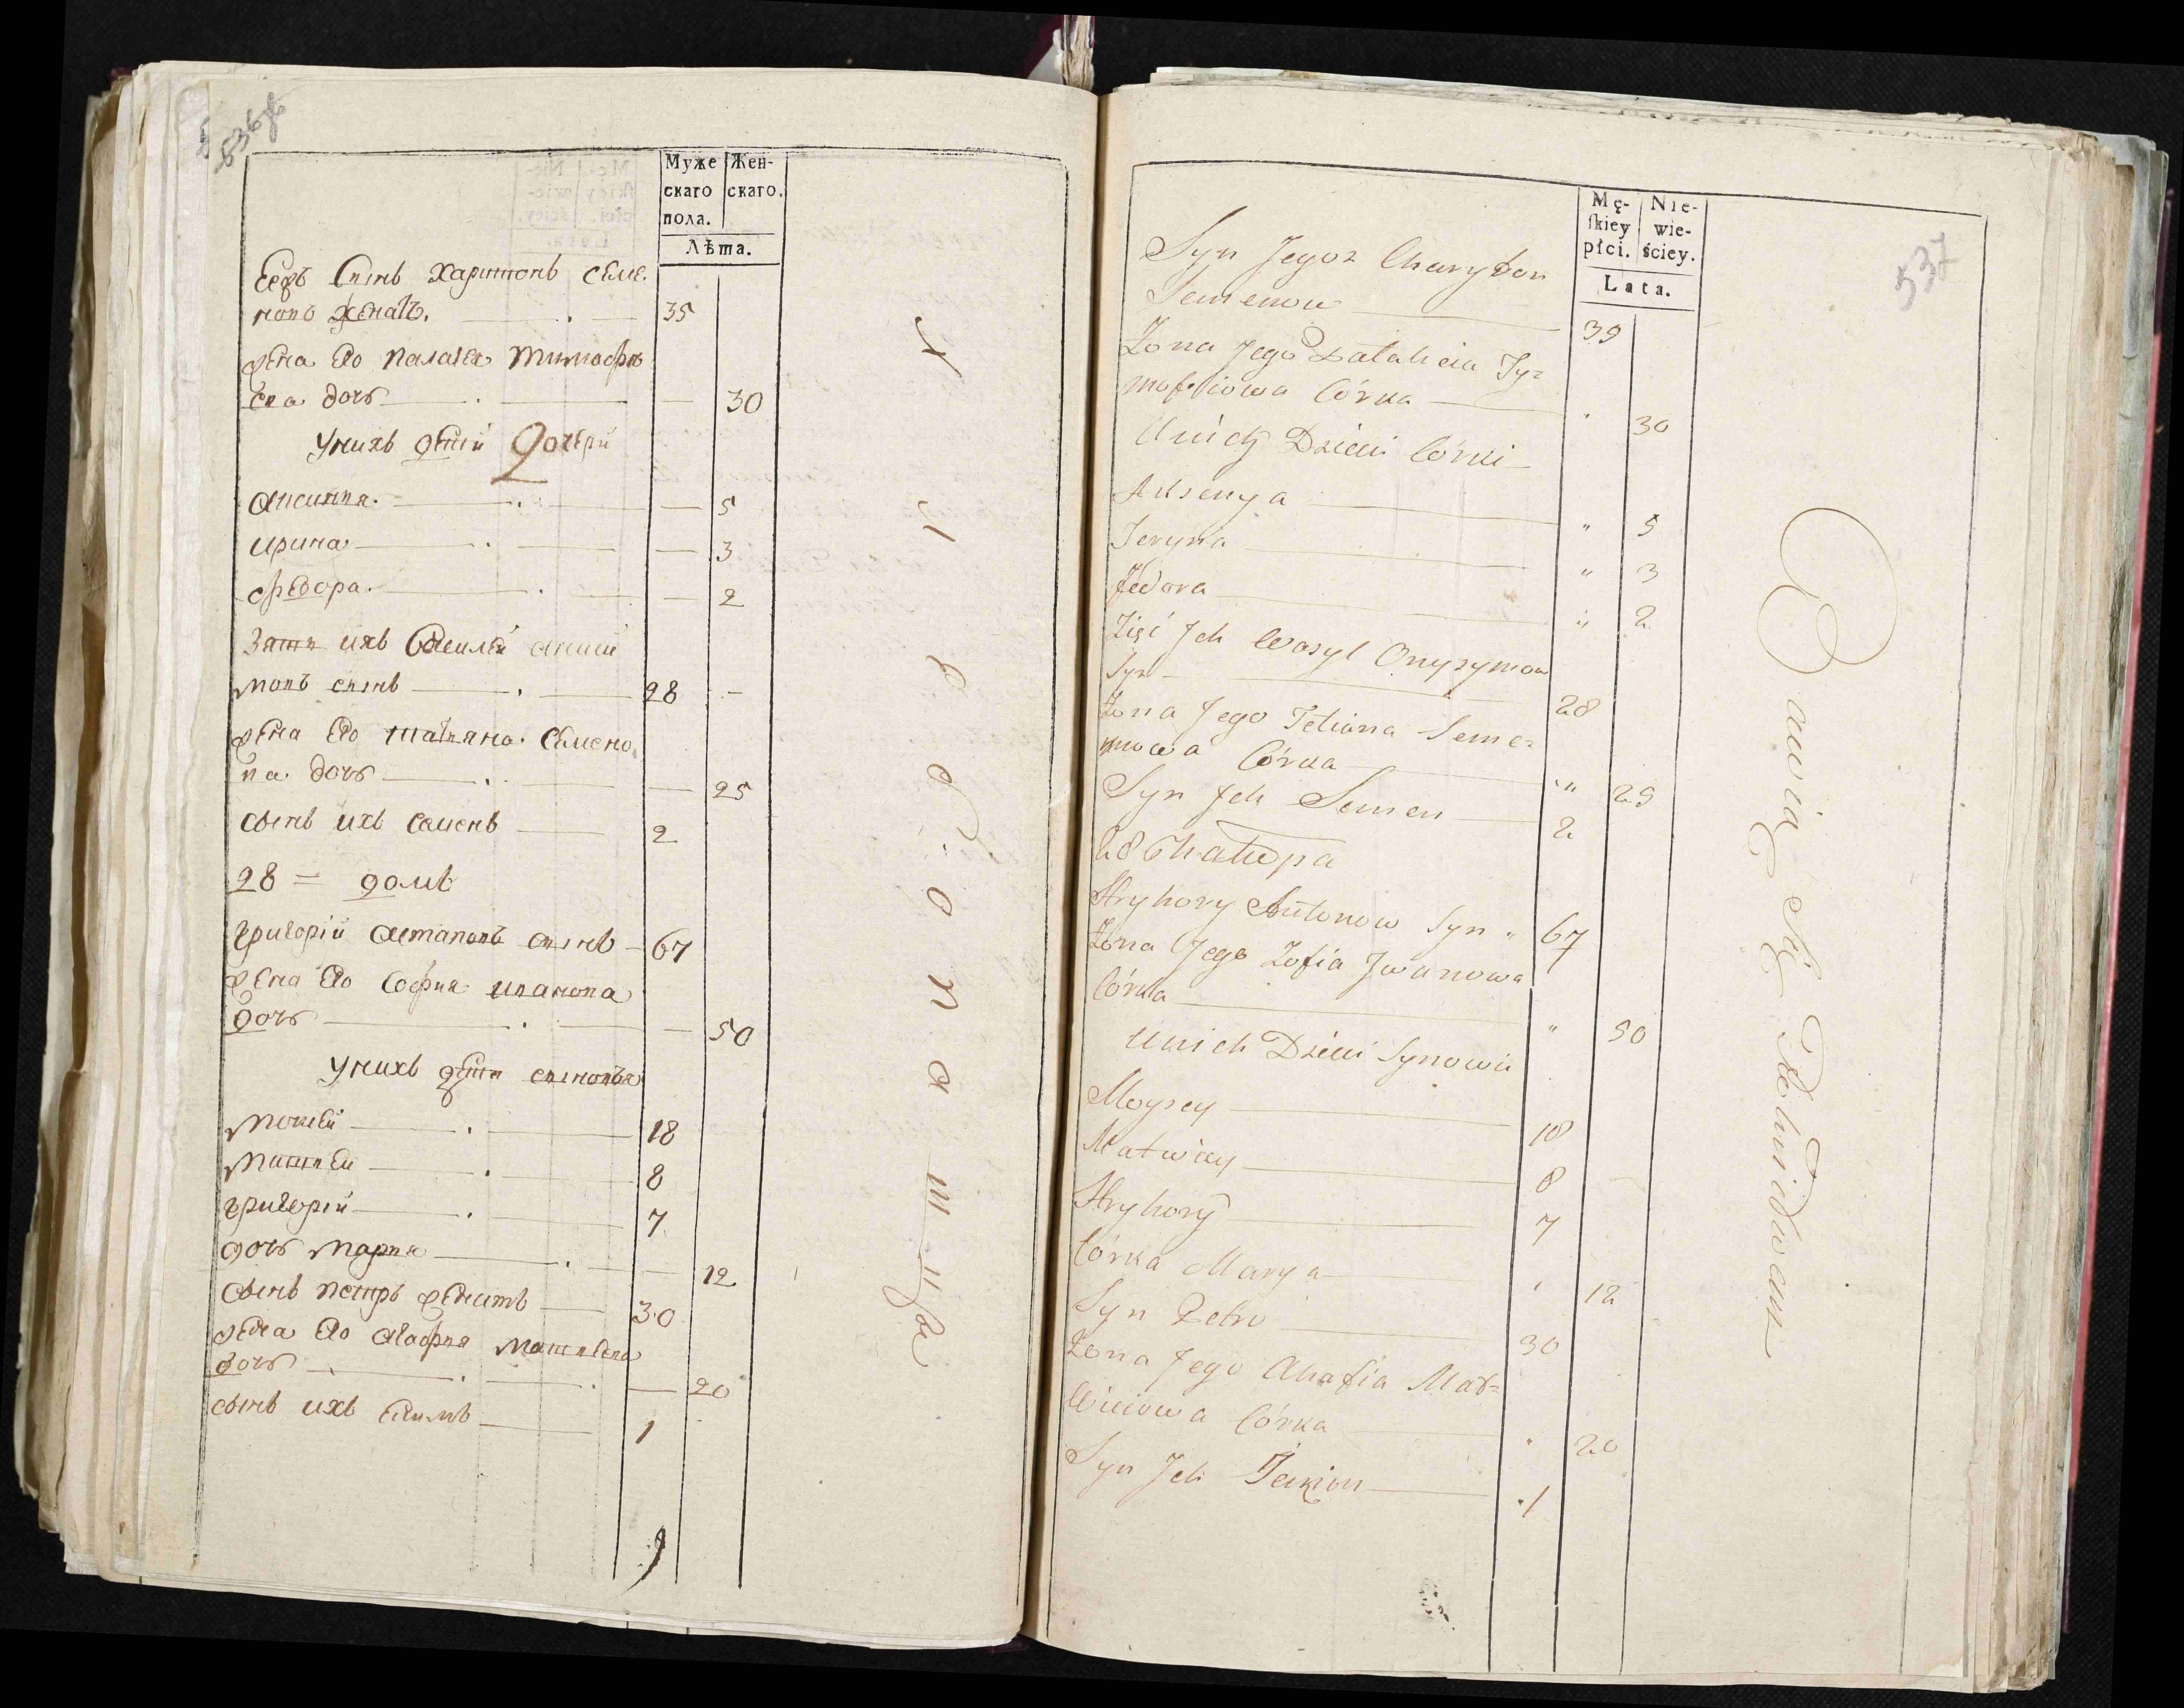 536 об
Муже Жен-
скаго скаго.
пола.
Лѣта.
Его Сынъ Харитонъ Семе.
новъ женатъ. 35
жена Его Палагея Тимофѣ
ева дочь — 30
Унихъ дѣтей Дочери
Аксинья. — 5
Ирина — 3
Федора. — 2
Зять ихъ Василей Аниси
мовъ сынъ 28 -
жена Его Татьяна Семено
ва дочь — 25
Сынъ ихъ Семенъ 2
28 = домъ
Григорій Антоновъ сынъ 67
жена Его Софья Иванова
дочь — 50
Унихъ дѣти сыновья
Мокей 18
Матвей 8
Григорій 7
дочь Марья — 12
Сынъ Петръ женатъ 30
жена Его Агафья Матвѣева
дочь — 20
Сынъ ихъ Екимъ 1
9
537
Mę- Nie-
skiey wie-
płci. ściey.
Lata.
Syn Jegoż Charyton
Semenow 35
Żona Jego Pałaheia Ty=
mofieiowa Córka " 30
Unich Dzieci Córki
Aksenya " 5
Jeryna " 3
Fedora " 2
Zięć Jch Wasyl Onysymow
Syn 28
Żona Jego Tetiana Seme=
nowa Córka " 25
Syn Jch Semen 2
28 Chałupa
Hryhory Antonow Syn " 67
Żona Jego Zofia Jwanowa
Córka " 50
Unich Dzieci Synowie
Moysey 18
Matwiey 8
Hryhory 7
Córka Marya " 12
Syn Petro 30
Żona Jego Ahafia Mat=
wieiowa Córka " 20
Syn Jch Jekim 1